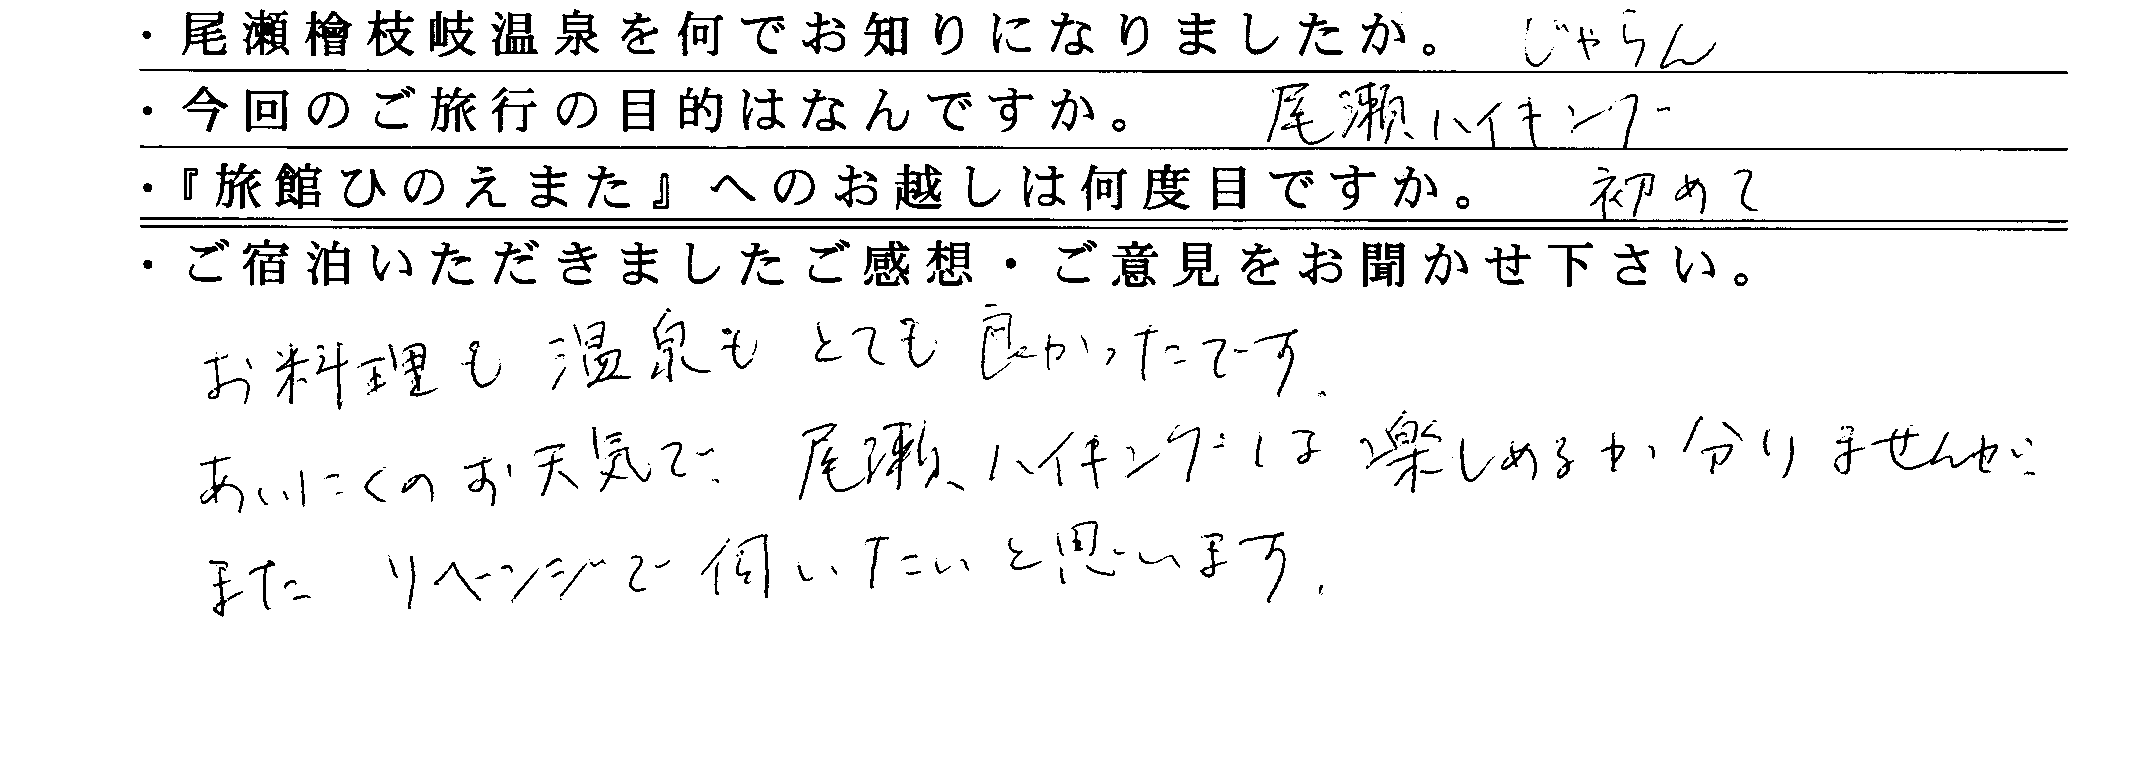 ・尾瀬檜枝岐温泉を何でお知りになりましたか。 じゃらん
・今回のご旅行の目的はなんですか。 尾瀬ハイキング
・『旅館ひのえまた』へのお越しは何度目ですか。 初めて
・ご宿泊いただきましたご感想・ご意見をお聞かせ下さい。
お料理も温泉もとても良かったです.
あいにくのお天気で、尾瀬ハイキングは楽しめるか分りませんが
またリベンジで伺いたいと思います.